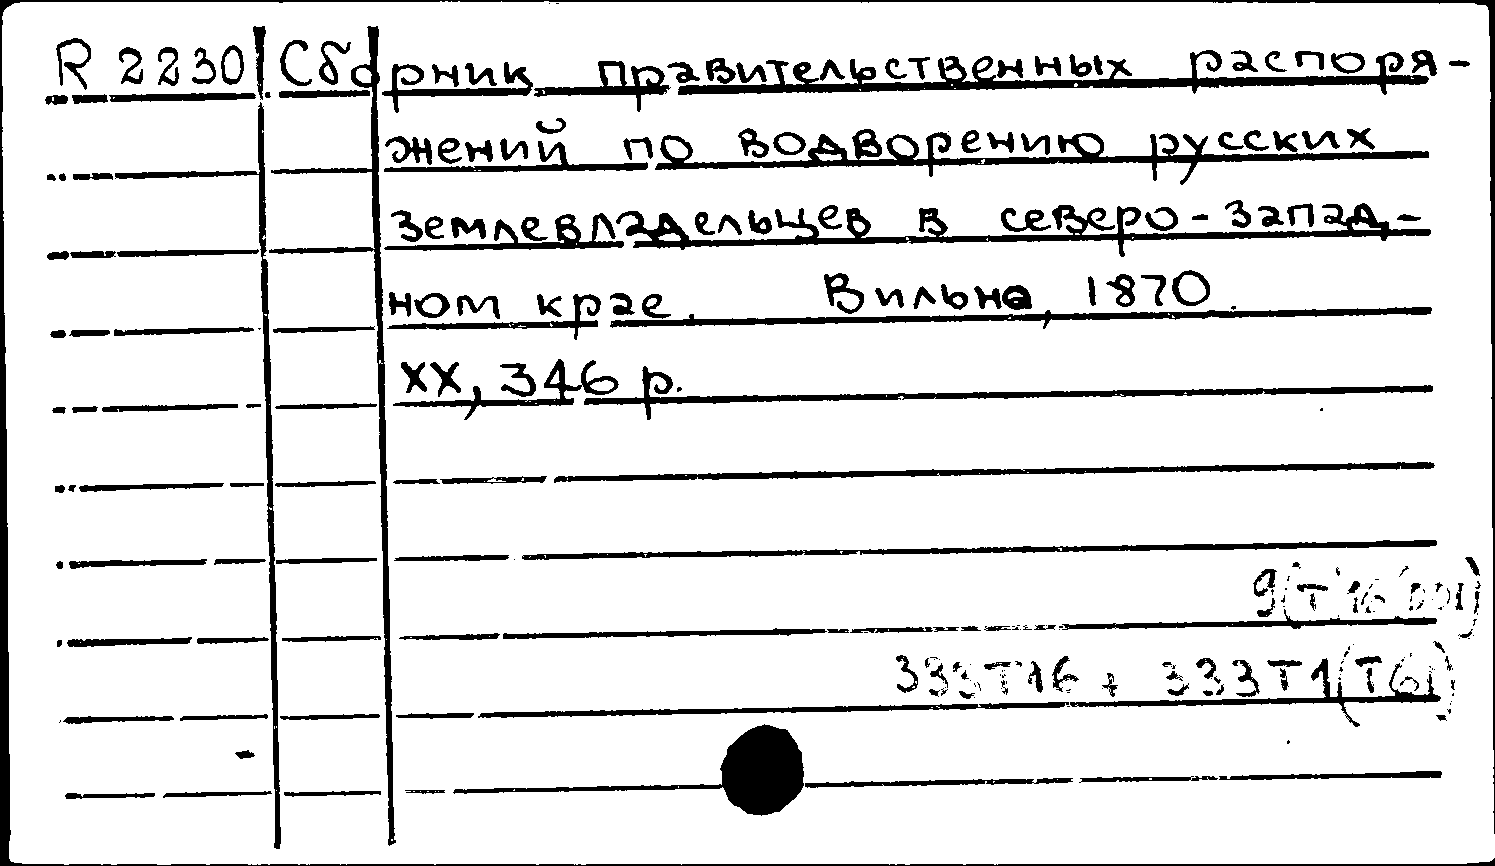 R 2230 Сборник правительственных распоря-
жений по водворению русских
землевладельцев в северо-запад-
ном крае. Вильна, 1870.
XX, 346 p.
333T16 + 333T1(T61)